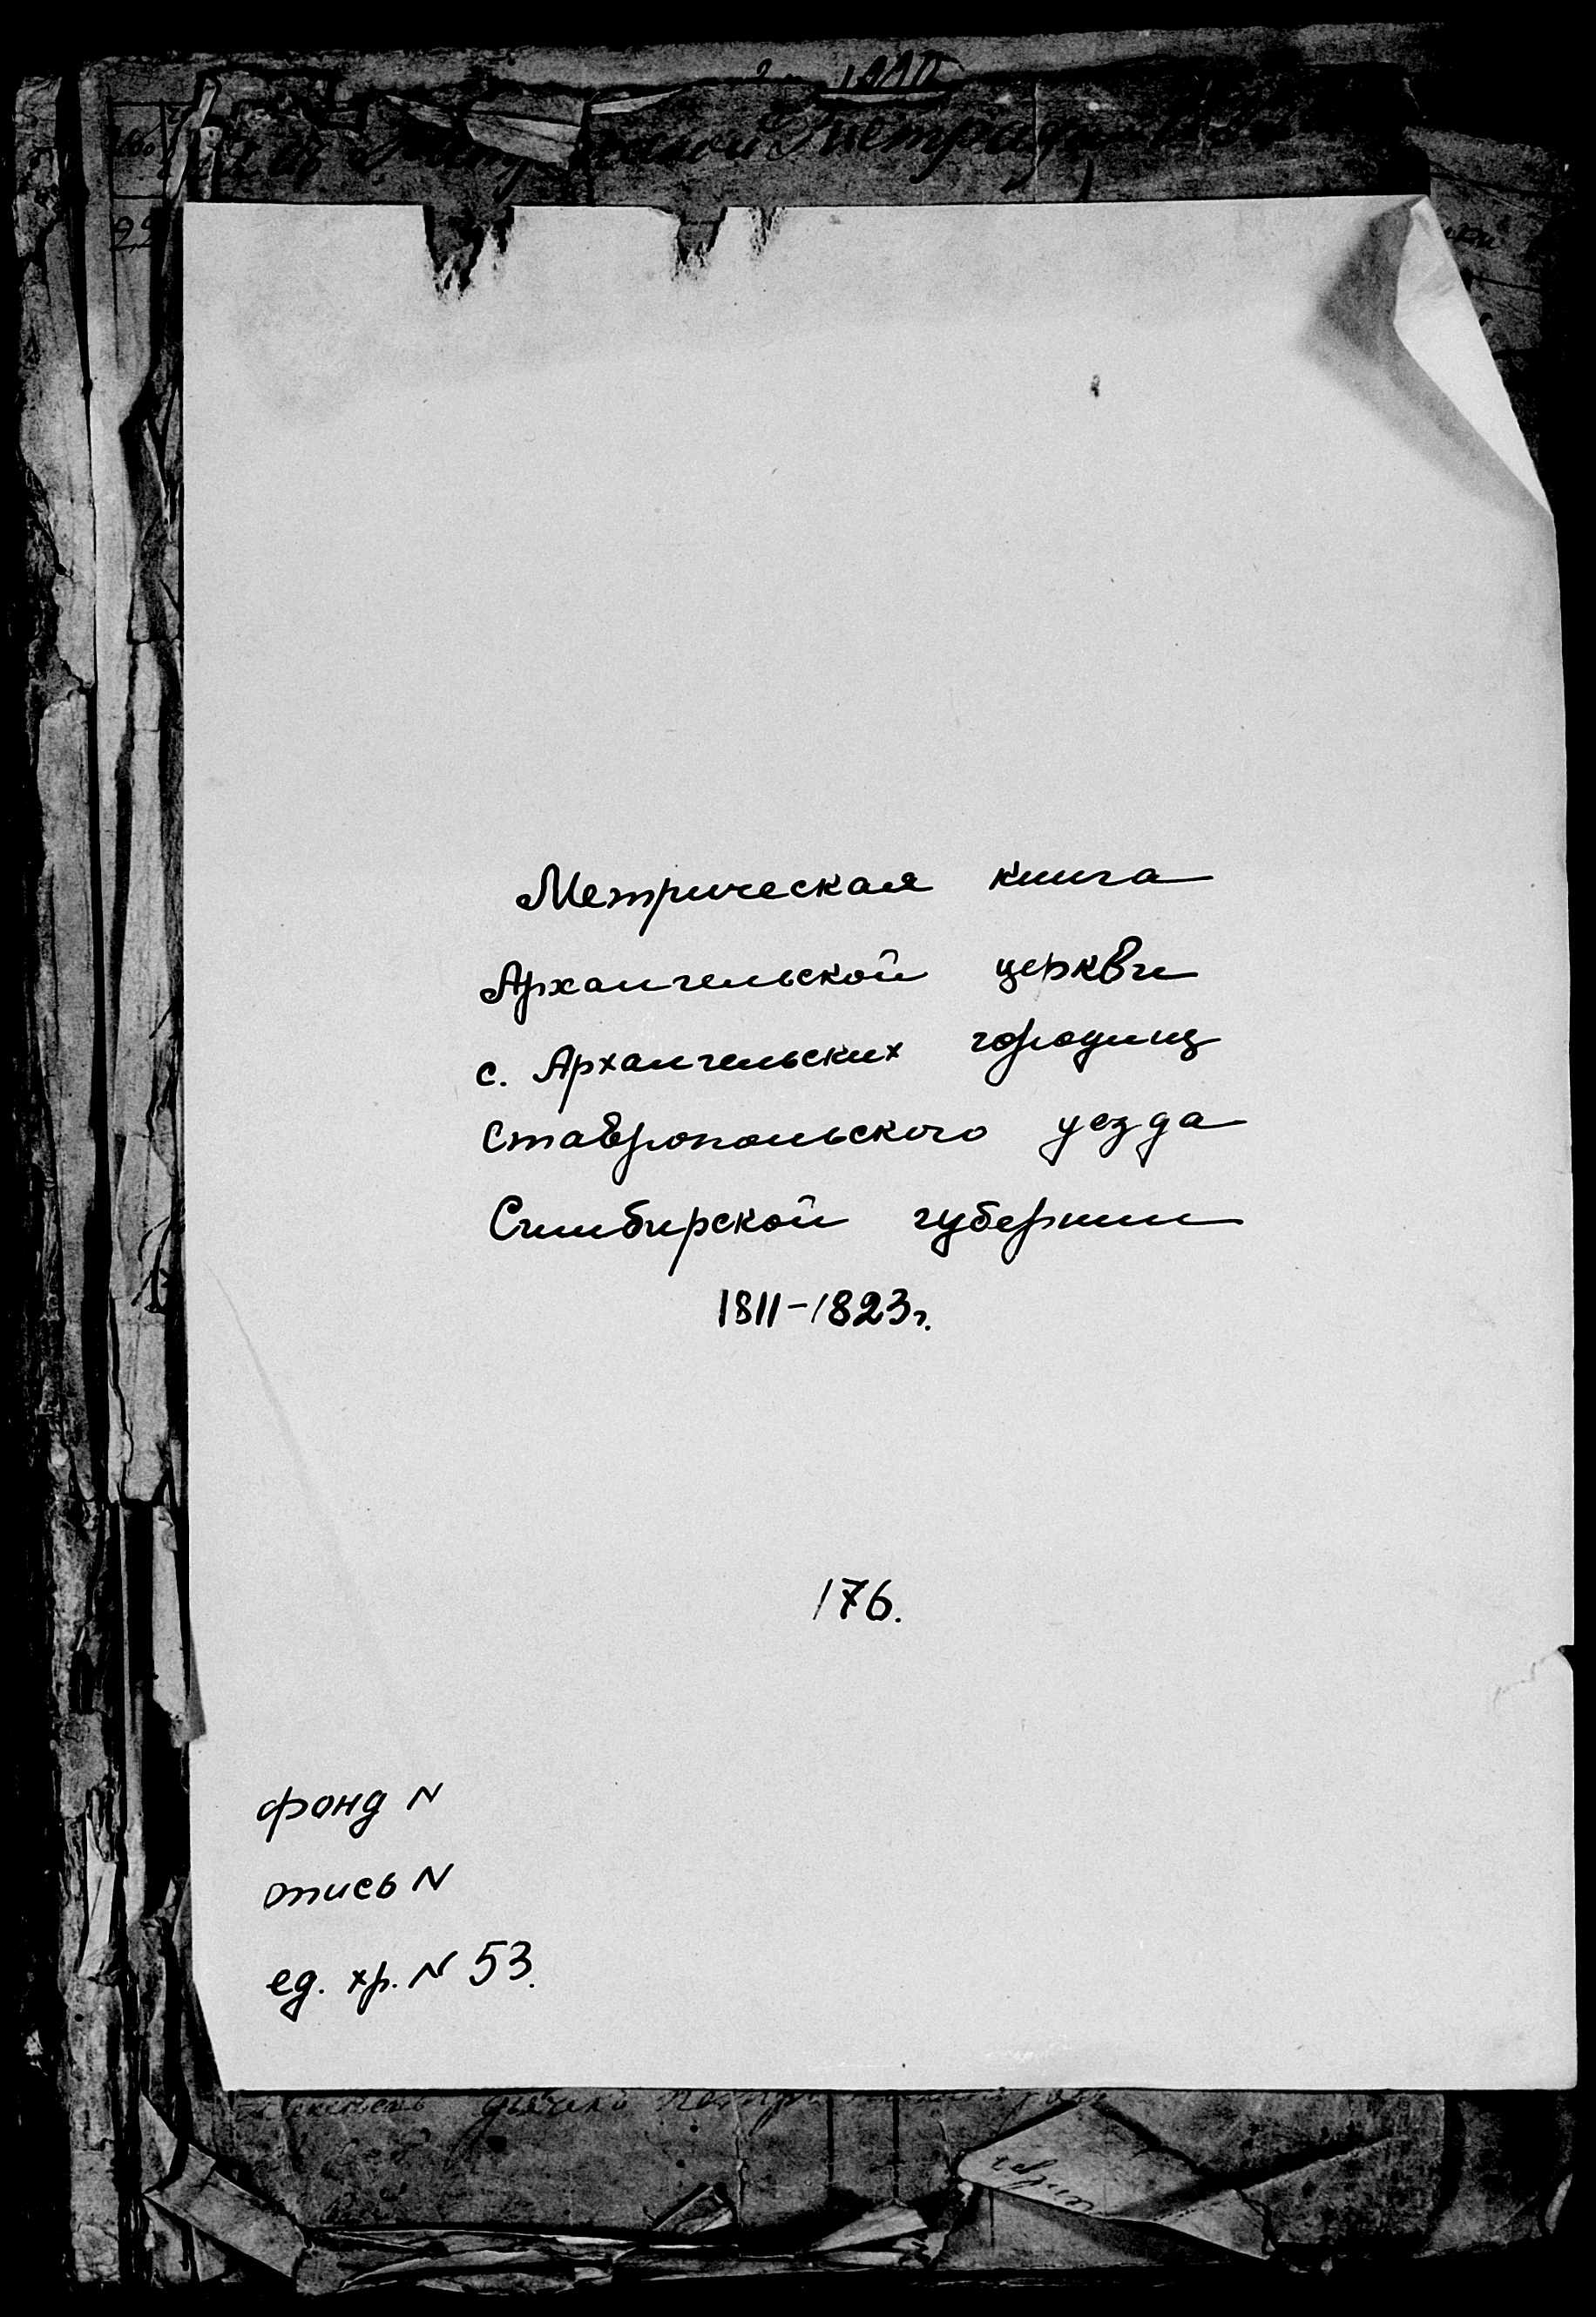 Метрическая книга
Архангельской церкви
с. Архангельских городищ
Ставропольского уезда
Симбирской губернии
1811-1823г.
176.
фонд N
опись N
ед. хр. N 53.